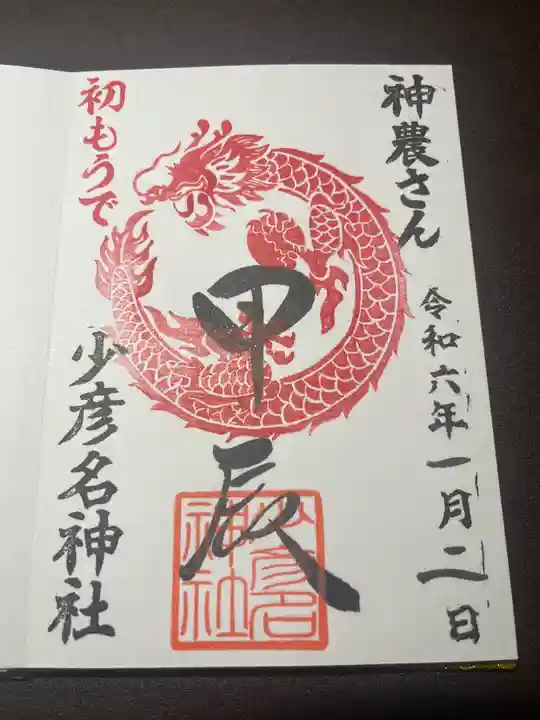 神農さん
令和六年一月二日
甲辰
少彦名
神社
初もうで
少彦名神社